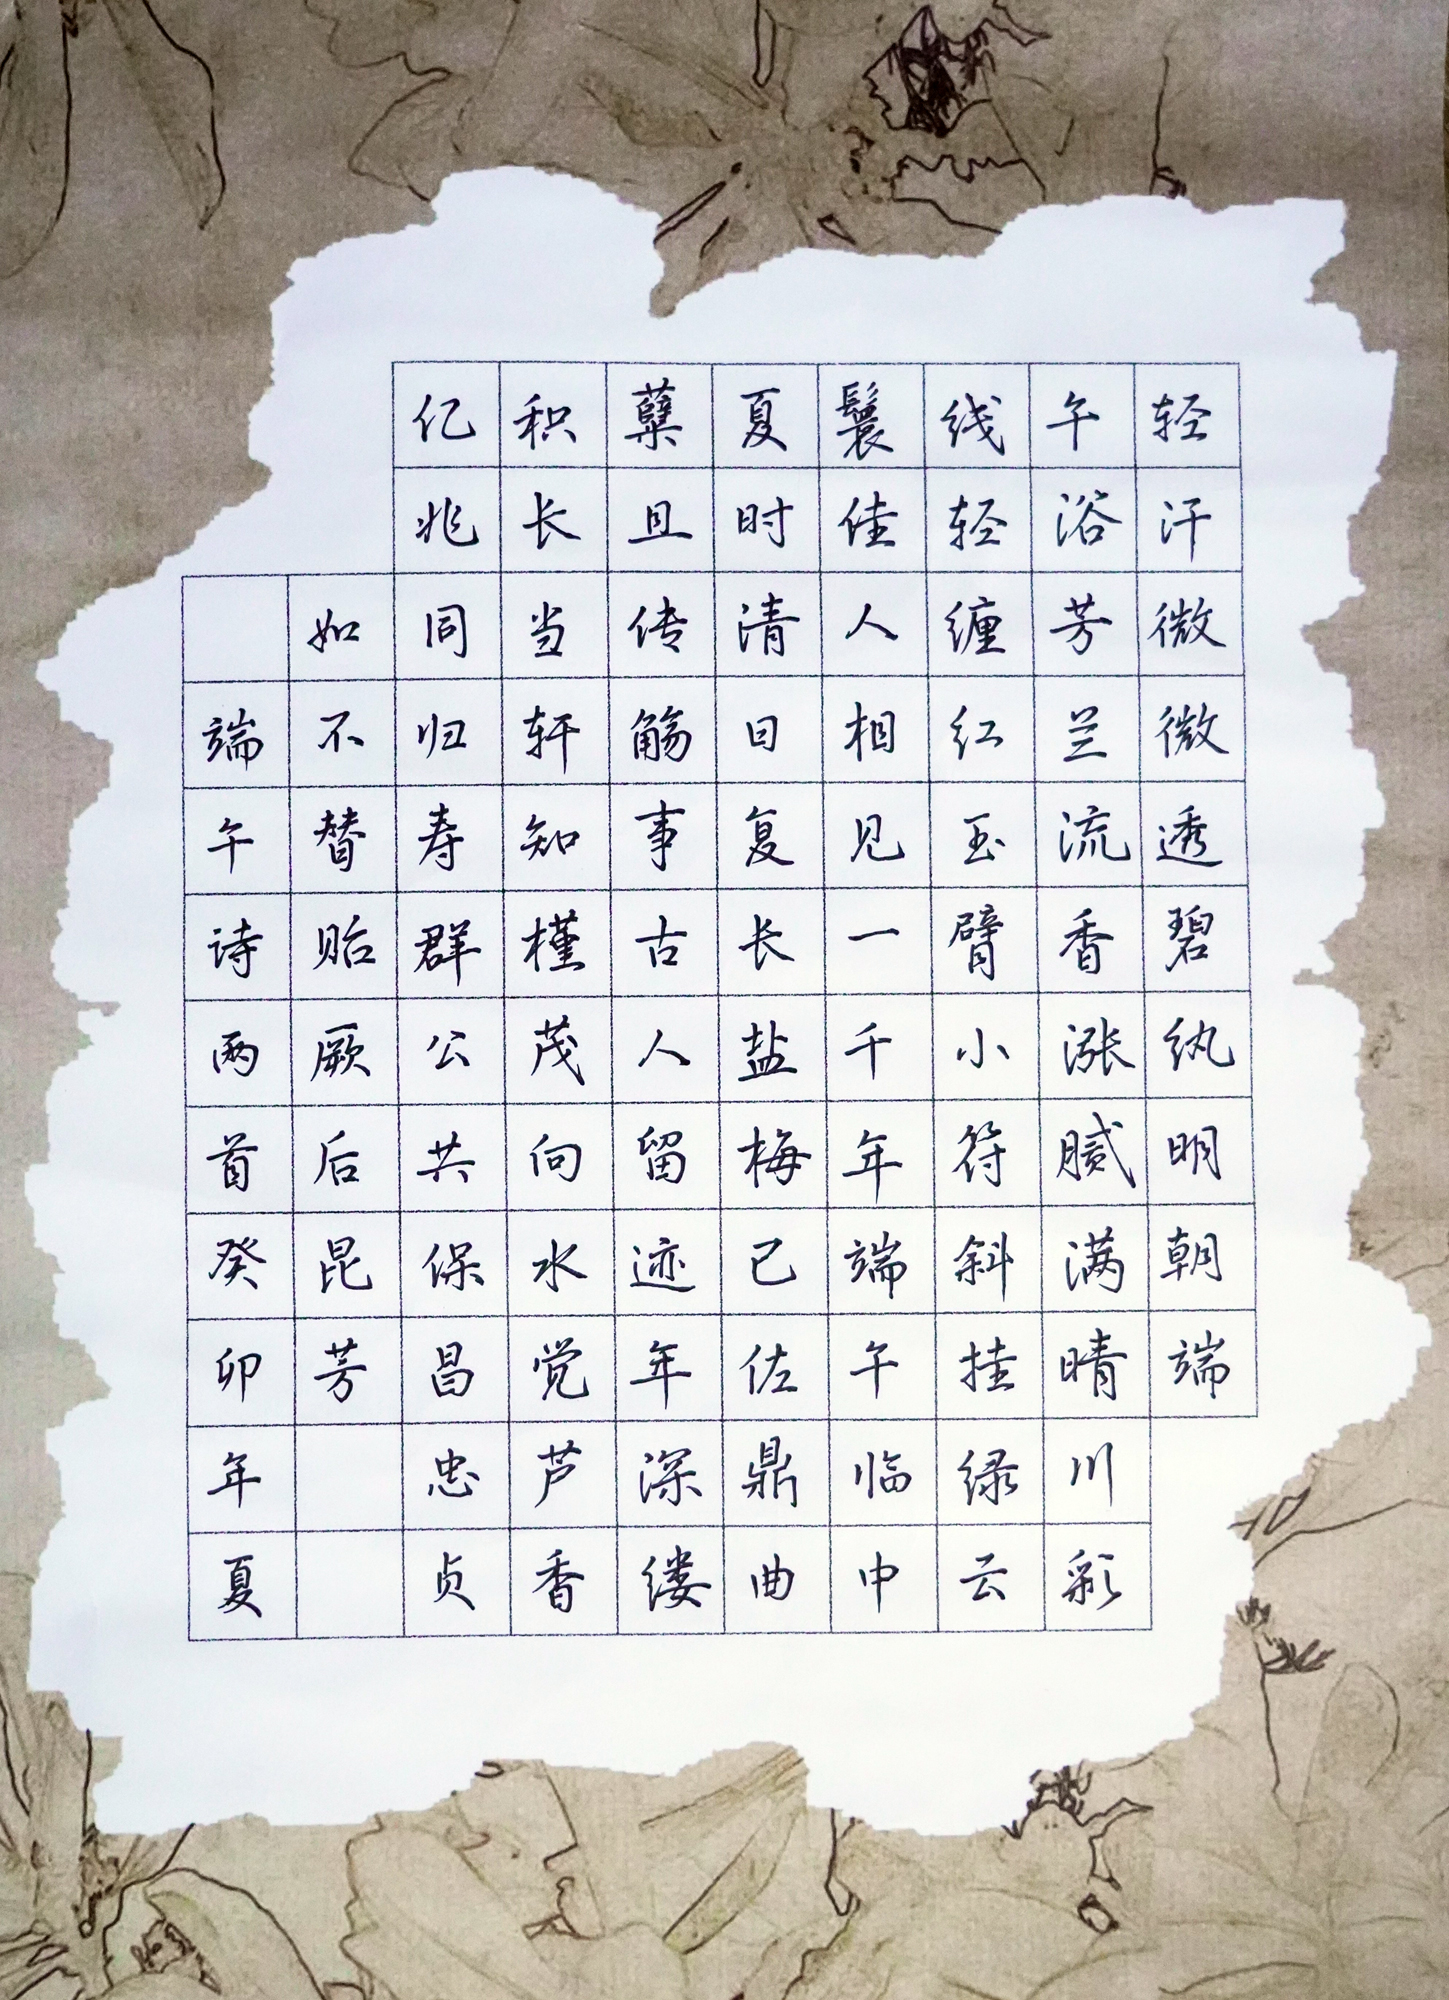 轻汗微微透碧纨明朝端
午浴芳兰流香涨腻满晴川彩
线轻缠红玉臂小符斜挂绿云
鬟佳人相见一千年端午临中
夏时清日复长盐梅已佐鼎曲
蘖且传觞事古人留迹年深缕
积长当轩知槿茂向水觉芦香
亿兆同归寿群公共保昌忠贞
如不替贻厥后昆芳
端午诗两首癸卯年夏